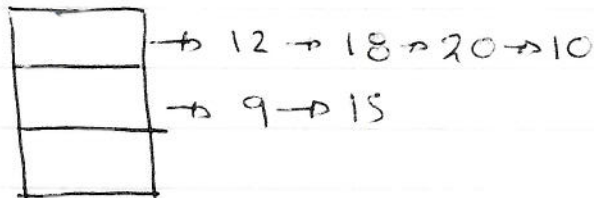 → 12 → 18 → 20 → 10
→ 9 → 15